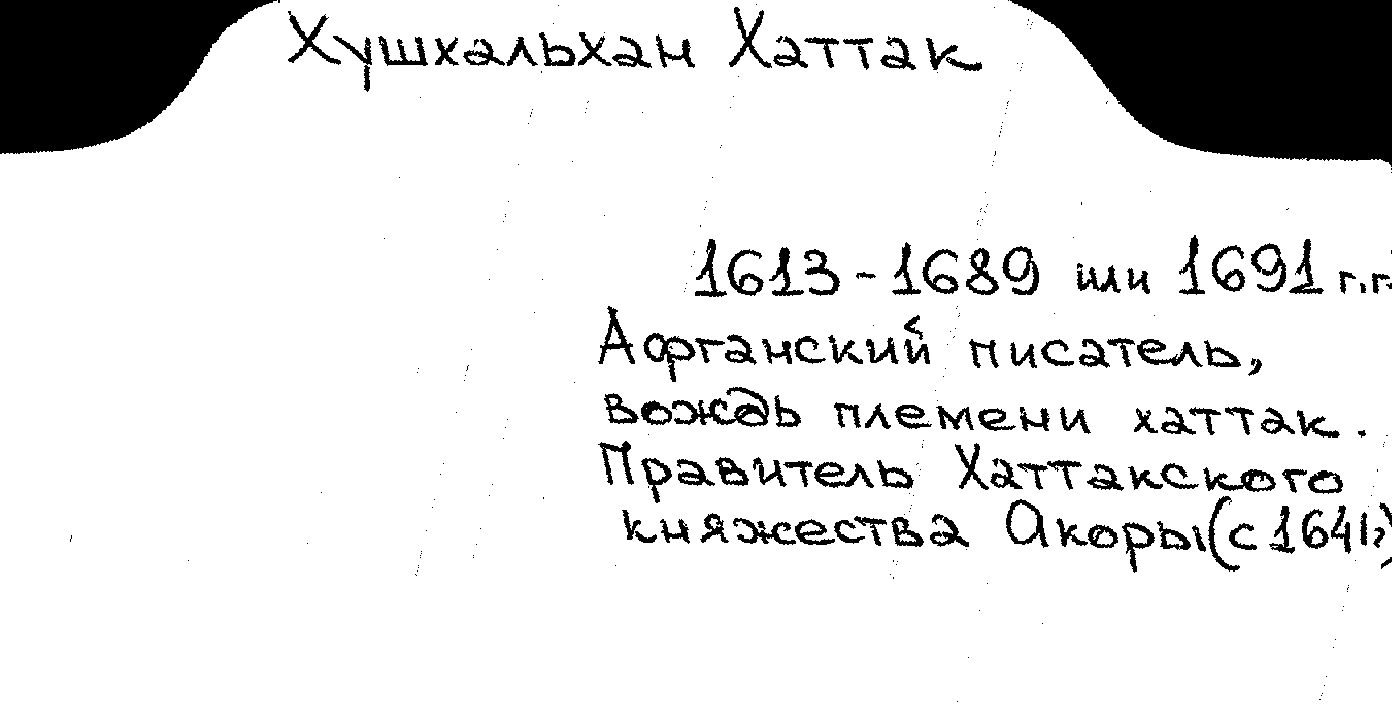 Хушхальхан Хаттак
1613-1689 или 1691 г.г.
Афганский писатель,
вождь племени хаттак.
Правитель Хаттакского
княжества Акоры (с 1641г)